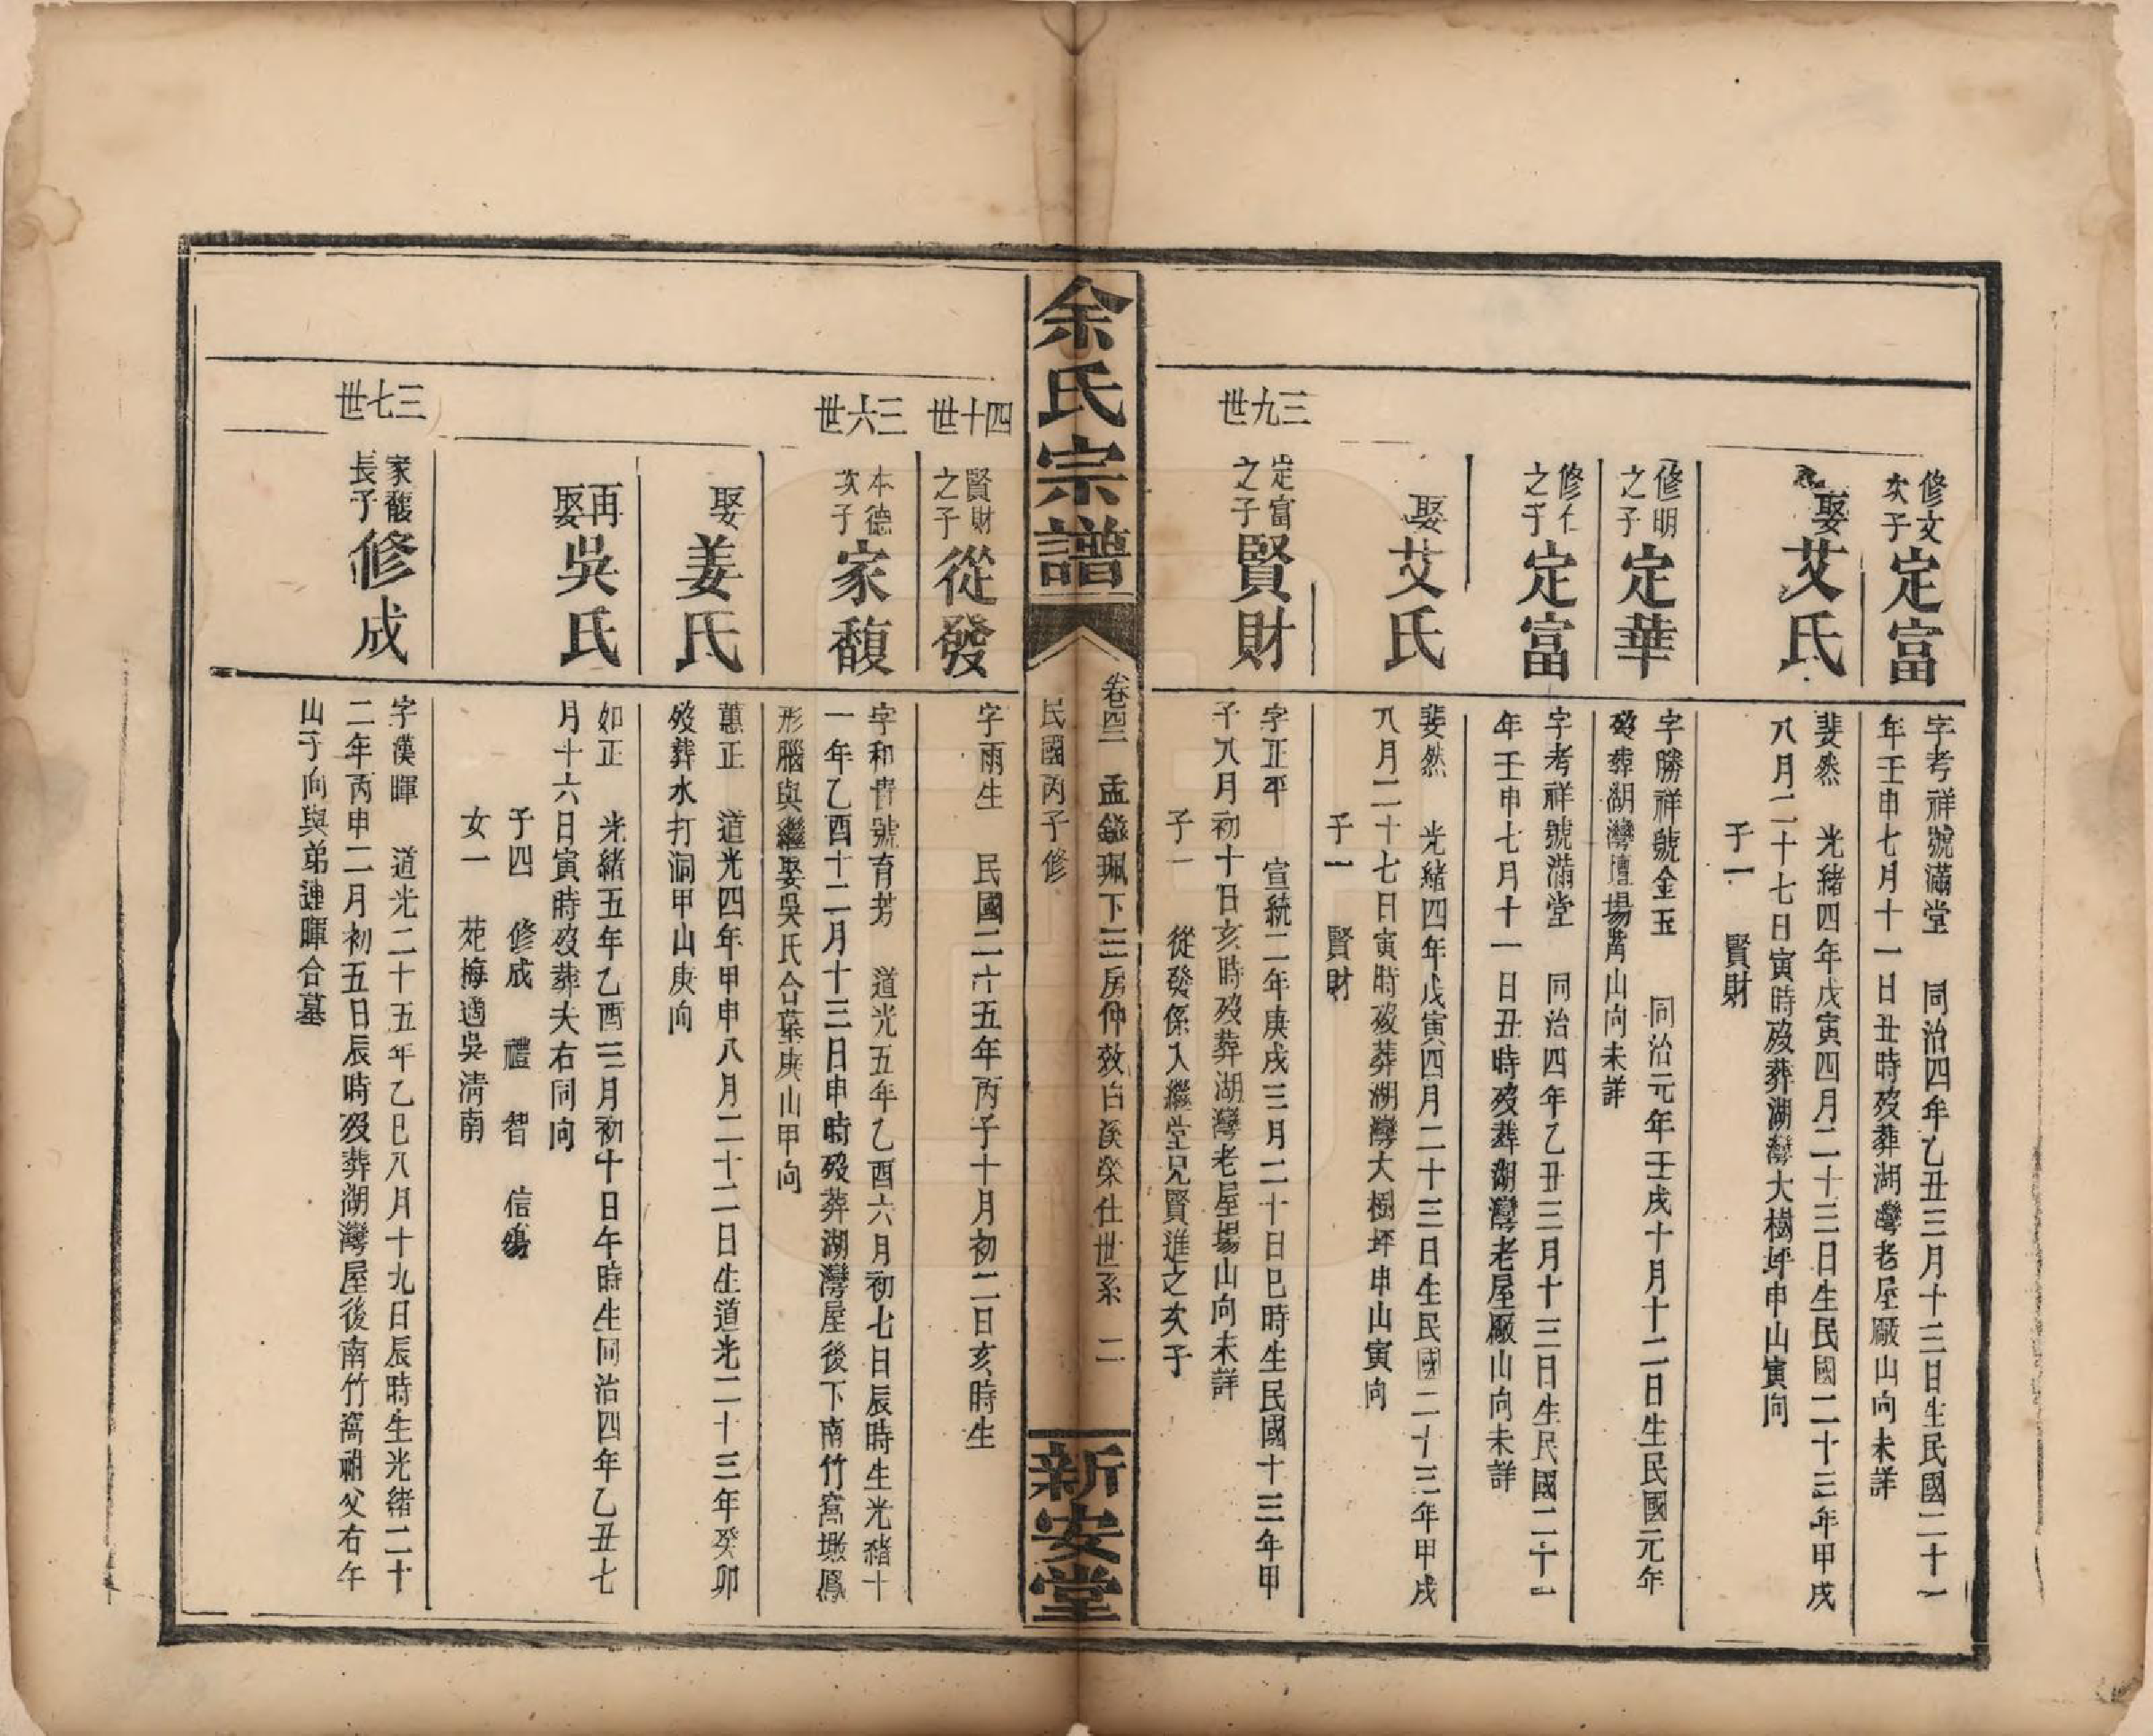 修文次子定富
字考祥號滿堂　同治四年乙丑三月十三日生民國二十一
年壬申七月十一日丑時歿葬湖灣老屋廠山向未詳
娶艾氏
斐然　光緒四年戊寅四月二十三日生民國二十三年甲戌
八月二十七日寅時歿葬湖灣大樹坪申山寅向
子一　賢財
修明之子定華
字勝祥號金玉　同治元年壬戌十月十二日生民國元年
歿葬湖灣壇場背山向未詳
修仁之子定富
字考祥號滿堂　同治四年乙丑三月十三日生民國二十一
年壬申七月十一日丑時歿葬湖灣老屋廠山向未詳
娶艾氏
斐然　光緒四年戊寅四月二十三日生民國二十三年甲戌
八月二十七日寅時歿葬湖灣大樹坪申山寅向
子一　賢財
三九世
定富之子賢財
字正平　宣統二年庚戌三月二十日巳時生民國十三年甲
子八月初十日亥時歿葬湖灣老屋場山向未詳
子一　從發係入繼堂兄賢進之次子
余氏宗譜
卷四三　孟鎰珮下三房仲效白溪榮仕世系　二
民國丙子修
新安堂
四十世
賢財之子從發
字雨生　民國二六五年丙子十月初二日亥時生
三六世
本德次子家馥
字和貴號育芳　道光五年乙酉六月初七日辰時生光緒十
一年乙酉十二月十三日申時歿葬湖灣屋後下南竹窩墩鳳
形腦與繼娶吳氏合墓庚山甲向
娶姜氏
蕙正　道光四年甲申八月二十二日生道光二十三年癸卯
歿葬水打洞甲山庚向
再娶吳氏
如正　光緒五年乙酉三月初十日午時生同治四年乙丑七
月十六日寅時歿葬夫右同向
子四　修成　禮　智　信
女一　苑梅適吳清南
三七世
家馥長子修成
字漢暉　道光二十五年乙巳八月十九日辰時生光緒二十
二年丙申二月初五日辰時歿葬湖灣屋後南竹窩祖父右午
山子向與弟漣暉合墓